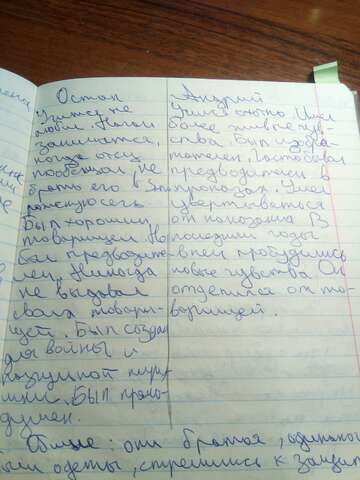 Остап
Учится не
любил. Начал
заниматся,
когда отец
пообещал, не
брать его в За
порожскую сеч
Был хорошим
товарищем. Не
был предводите
лем. Никогда
не выдавал
своих товари-
щей. Был создан
для войны и
разгульной
Был
думчив.
Андрий
Учился охотно. Имел
более живые чув-
ства. Был изобре-
тателен. Часто бывал
предводителем в
проказах. Умел
увертываться
от наказания. В
последний годы
в нем пробудились
новые чувства. Он
отделился от то-
варищей.
Общие: они братья, одинако
выми одеты, стремились к защит